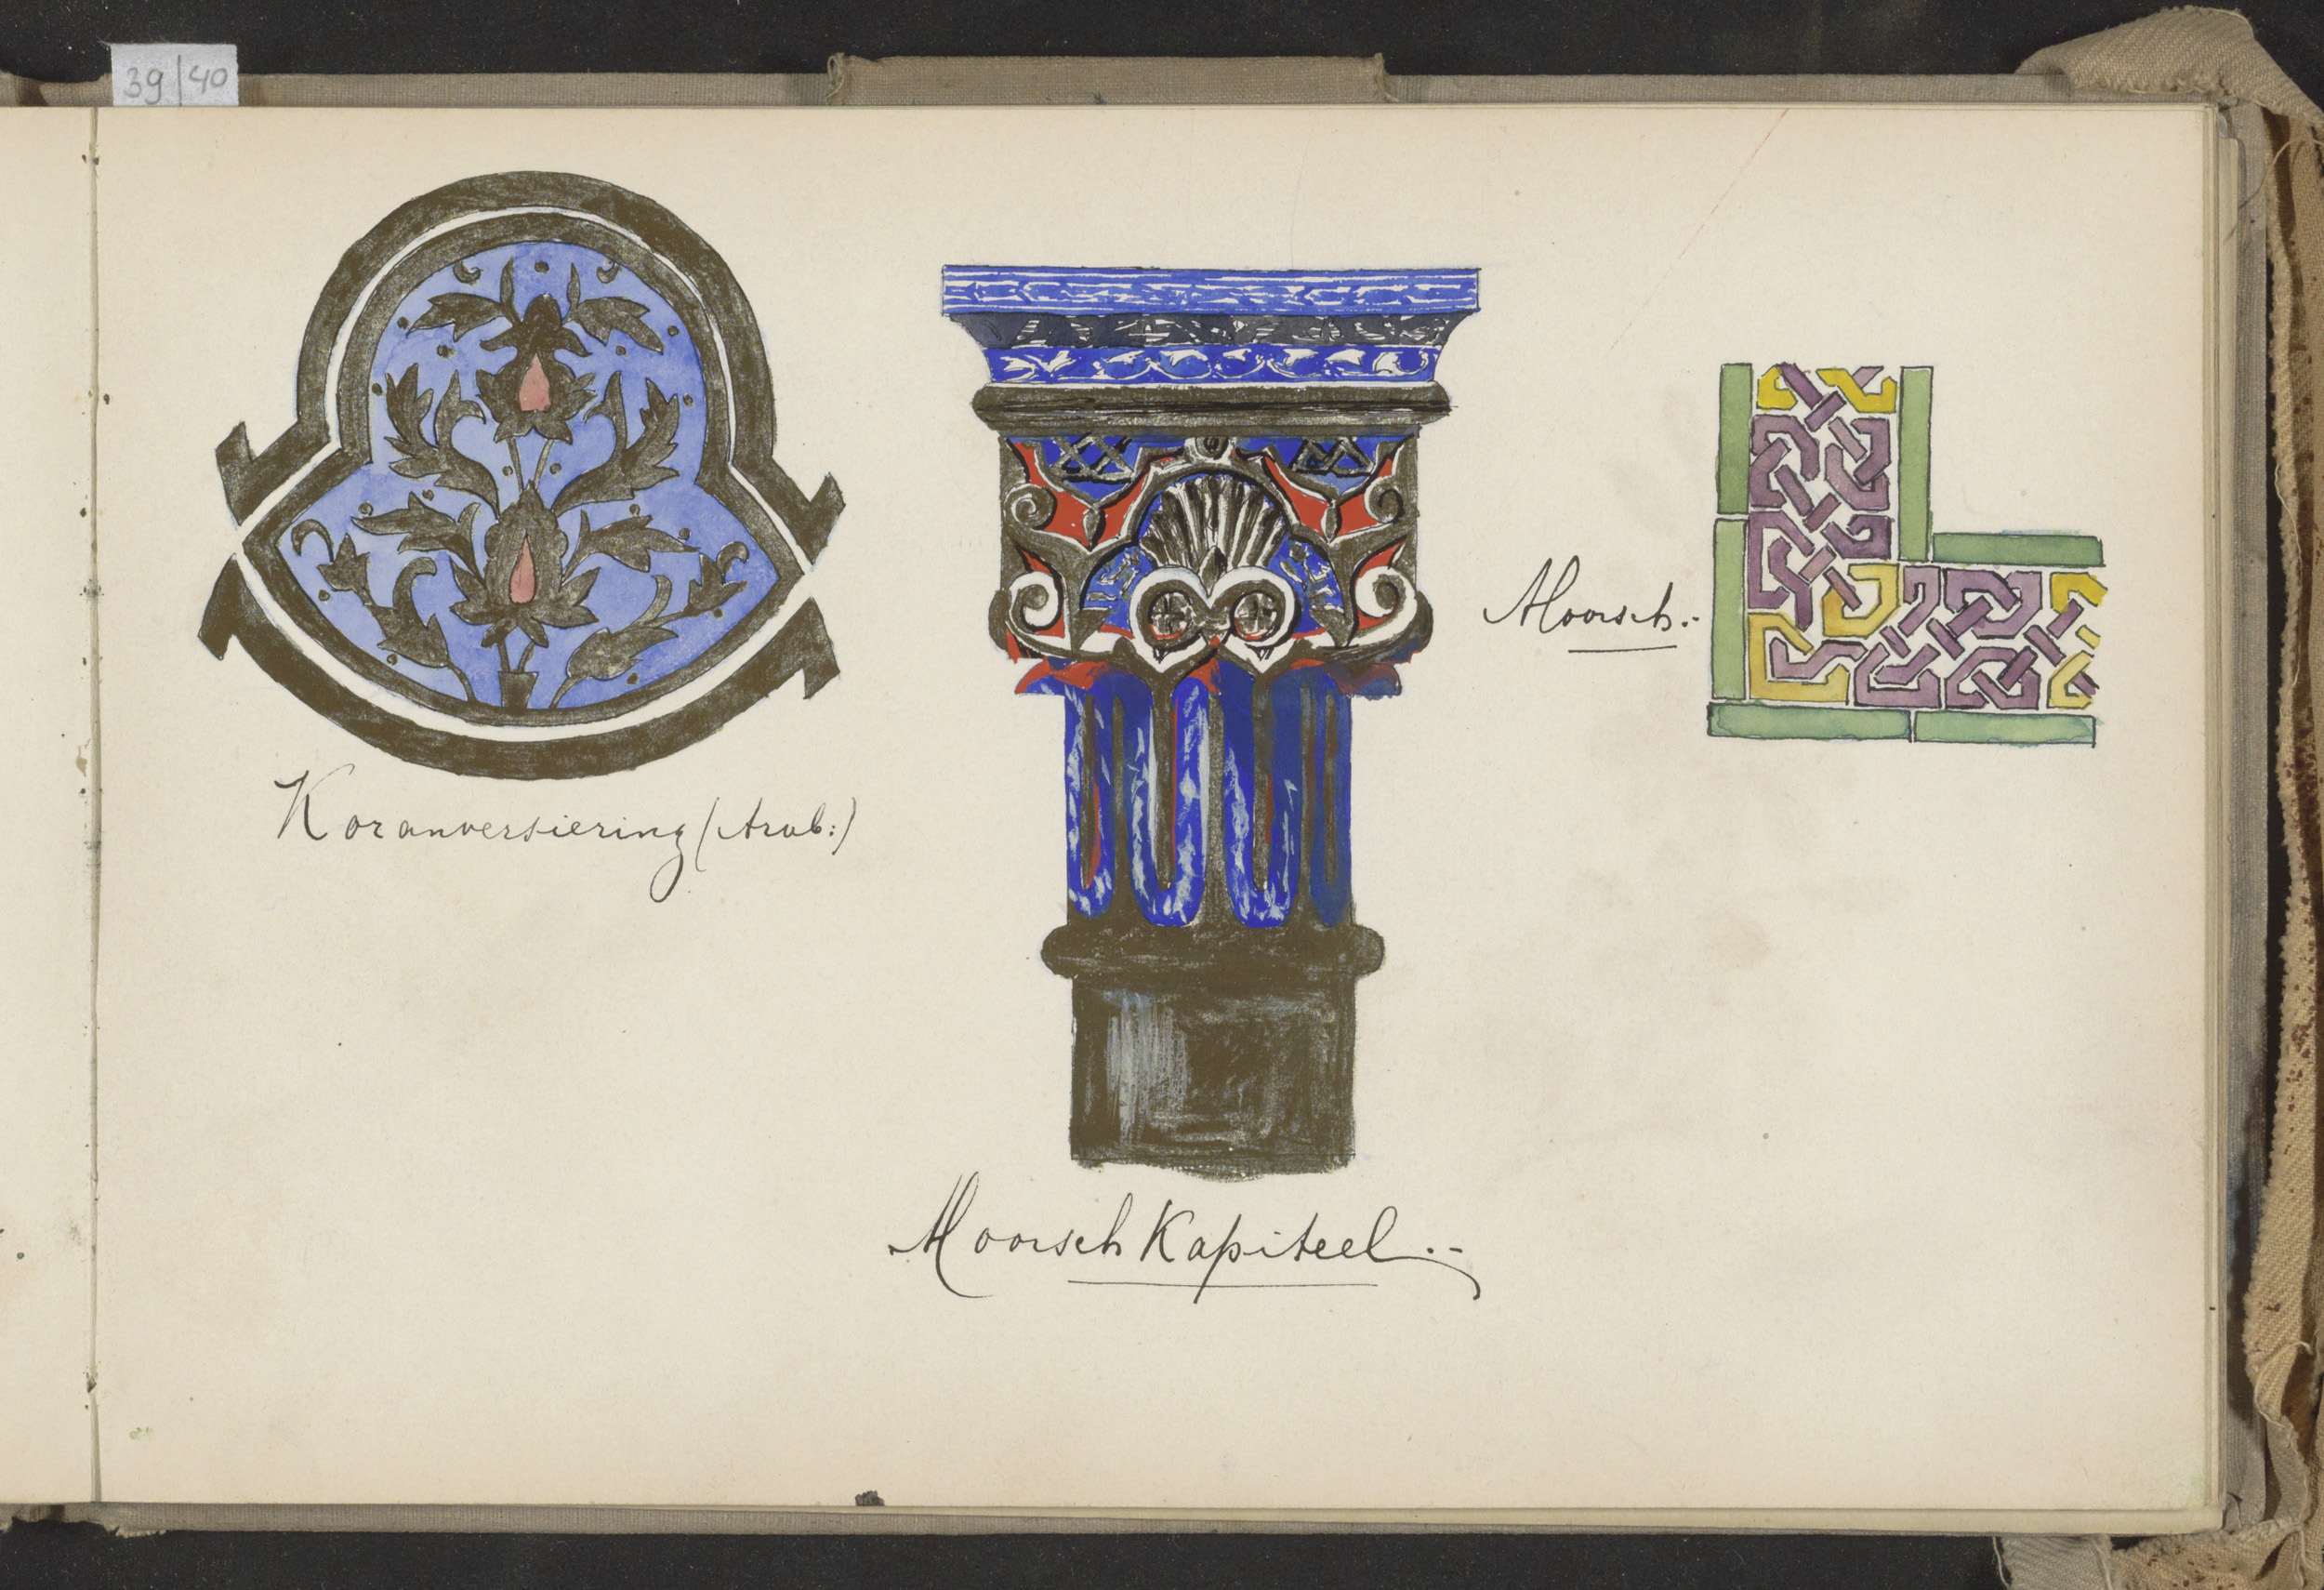 39/40
Koranversiering (Arab:)
Moorsch.-
Moorsch Kapiteel.-